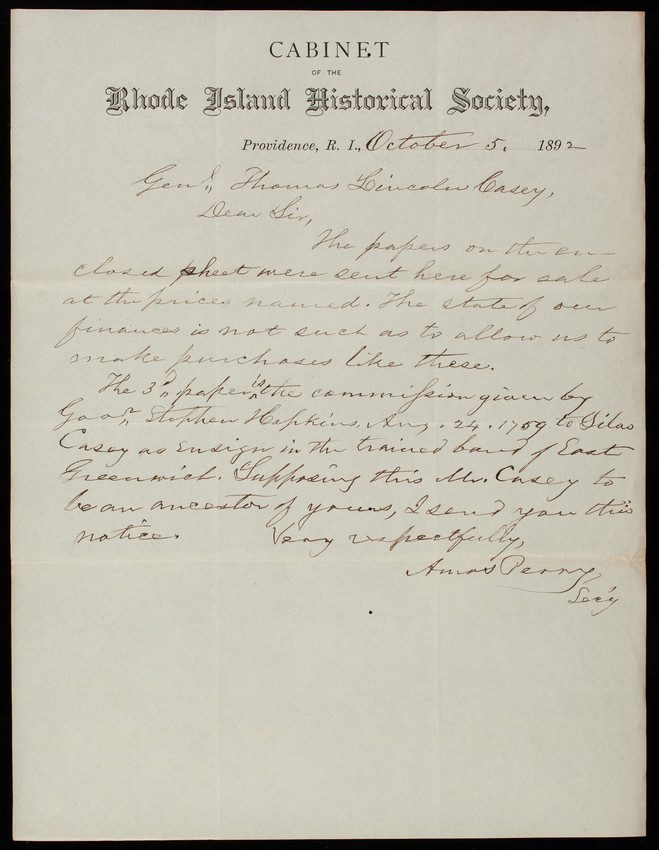 CABINET
OF THE
Rhode Island Historical Society,
Providence, R. I., October 5, 1892
Genl,, Thomas Lincoln Casey,
Dear Sir,
The papers on the en-
closed sheet were sent here for sale
at the prices named. The state of our
finances is not such as to allow us to
make purchases like these.
The 3d,, paper is the commission given by
Govr,, Stephen Hopkins, Aug. 24. 1759 to Silas
Casey as Ensign in the trained band of East
Greenwich. Supposing this Mr. Casey to
be an ancestor of yours, I send you this
notice. Very respectfully,
Amos Perry
Sec'y